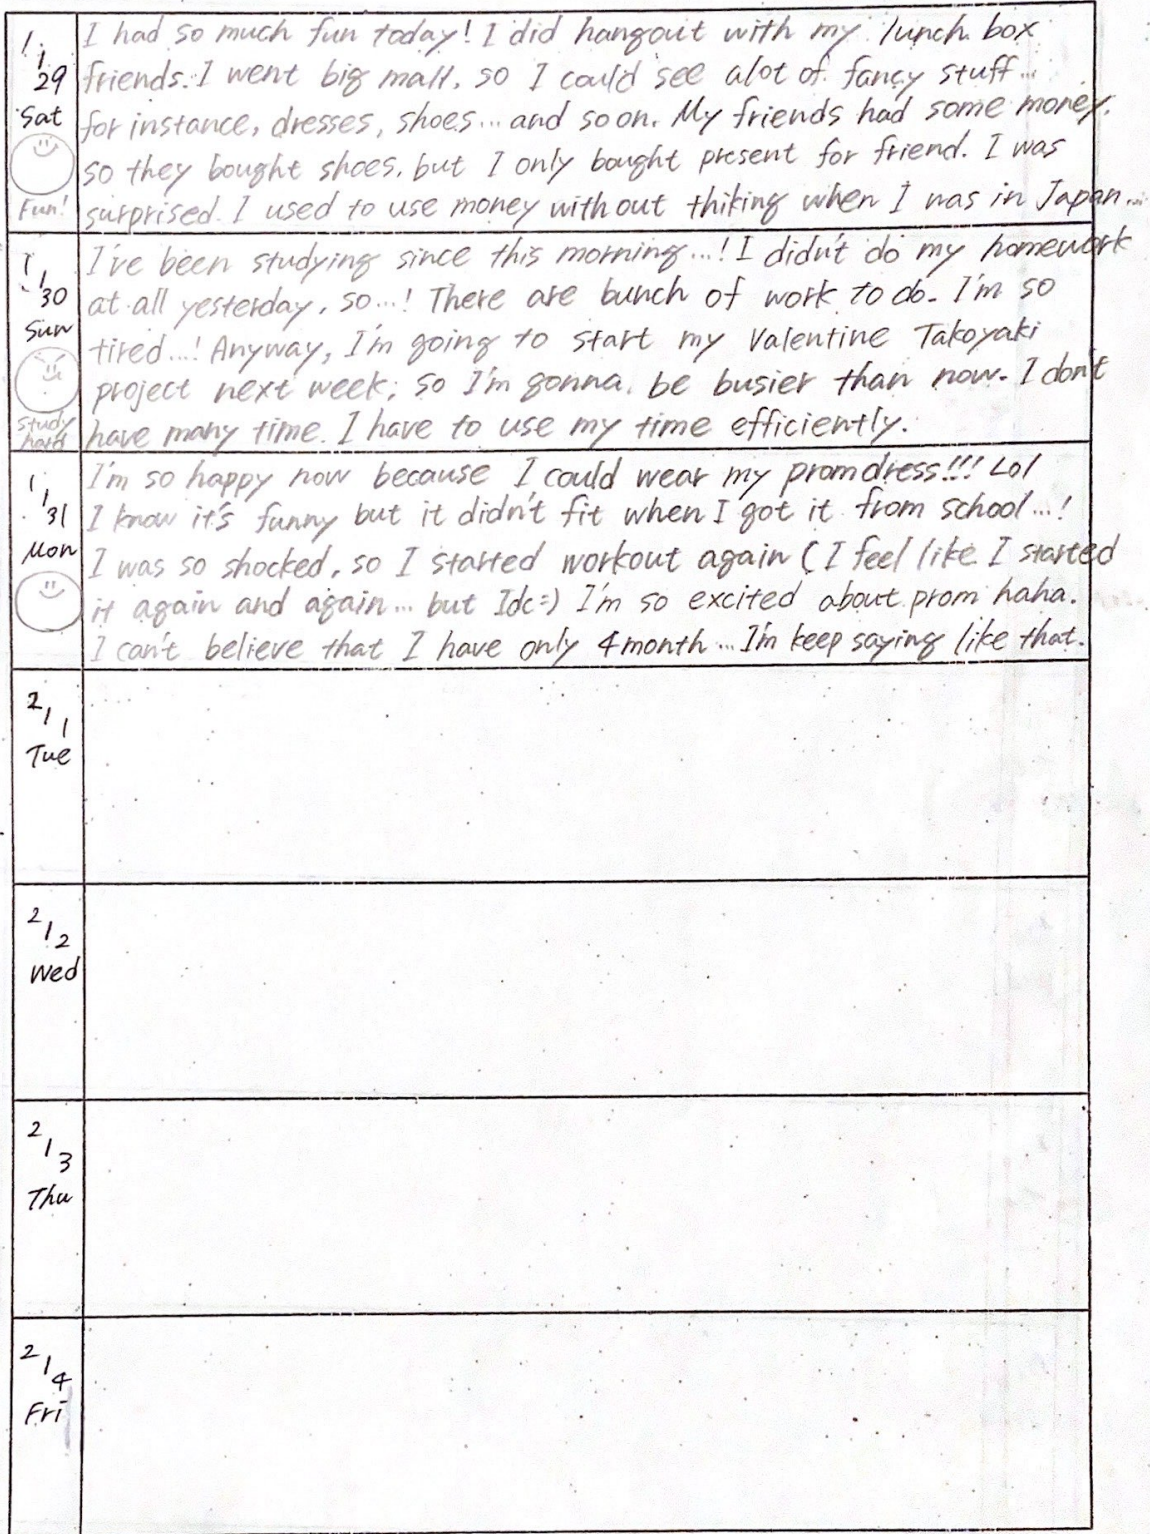 1/29
Sat
Fun!
I had so much fun today! I did hangout with my lunch box
friends. I went big mall, so I could see alot of fancy stuff...
for instance, dresses, shoes... and so on. My friends had some money,
so they bought shoes, but I only bought present for friend. I was
surprised. I used to use money without thiking when I was in Japan...
1/30
Sun
Study hard
I've been studying since this morning...! I didn't do my homework
at all yesterday, so...! There are bunch of work to do. I'm so
tired...! Anyway, I'm going to start my Valentine Takoyaki
project next week; so I'm gonna be busier than now. I don't
have many time. I have to use my time efficiently.
1/31
Mon
I'm so happy now because I could wear my prom dress!!! Lol
I know it's funny but it didn't fit when I got it from school...!
I was so shocked, so I started workout again ( I feel like I started
it again and again... but Idc=) I'm so excited about prom haha.
I can't believe that I have only 4 month... I'm keep saying like that.
2/1
Tue
2/2
Wed
2/3
Thu
2/4
Fri